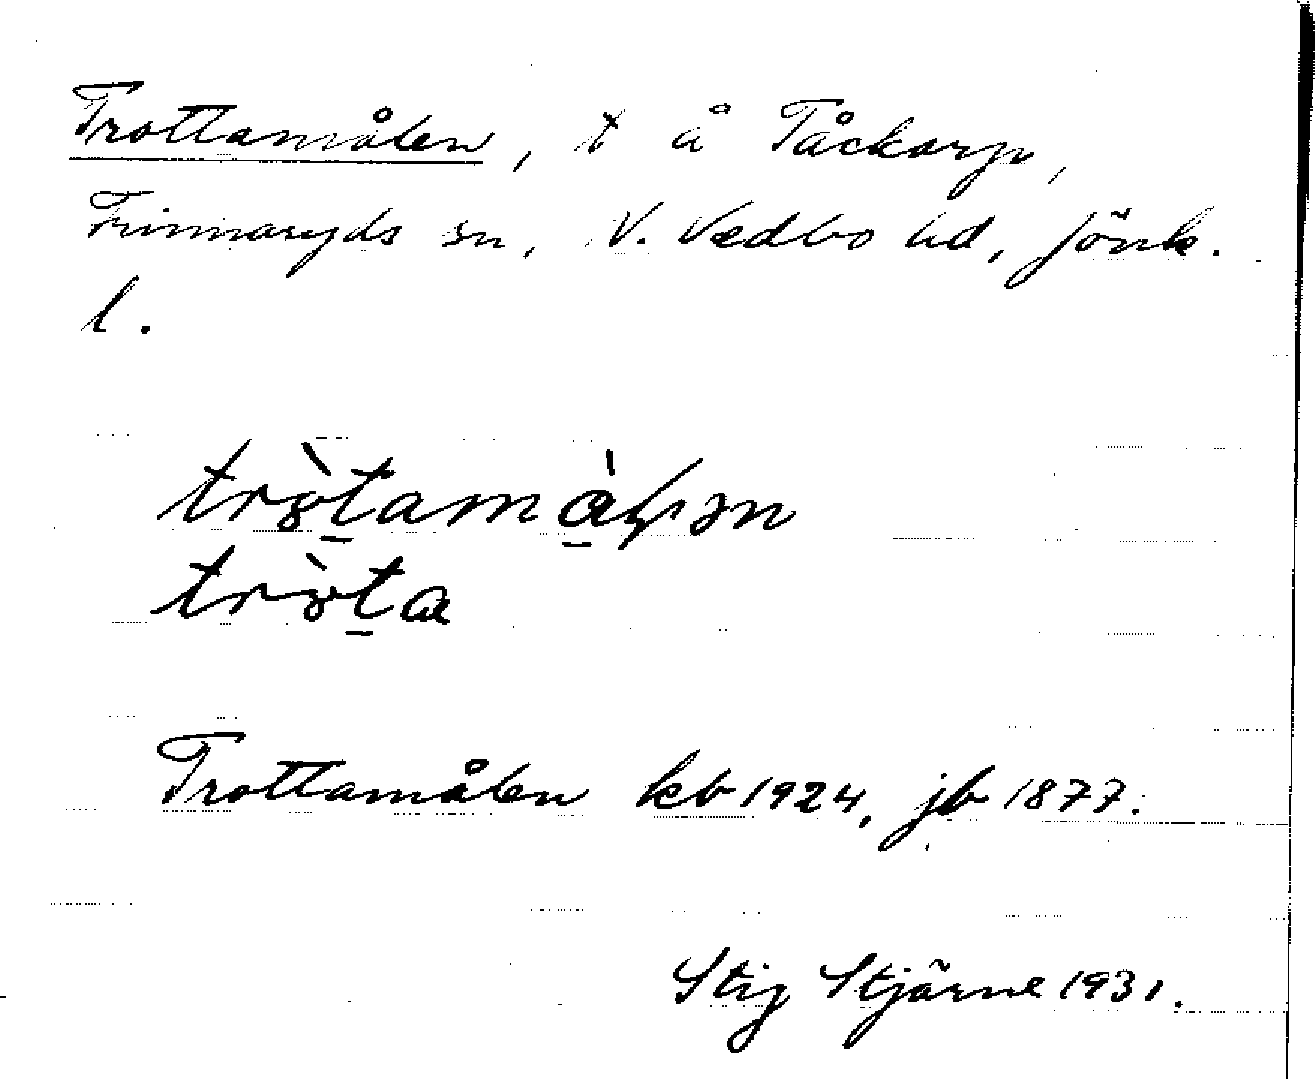 Trottamålen, t å Tåckarp,
Finnaryds sn, V. Vedbo hd, Jönk.
l.
trò̱tamàɭən
trò̱ta
Trottamålen kb 1924, jb 1877.
Stig Stjärne 1931.